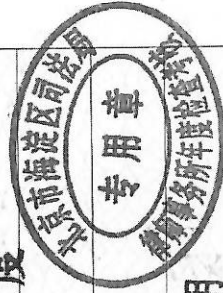 北京市海淀区司法局
专用章
律师事务所年度检查考核